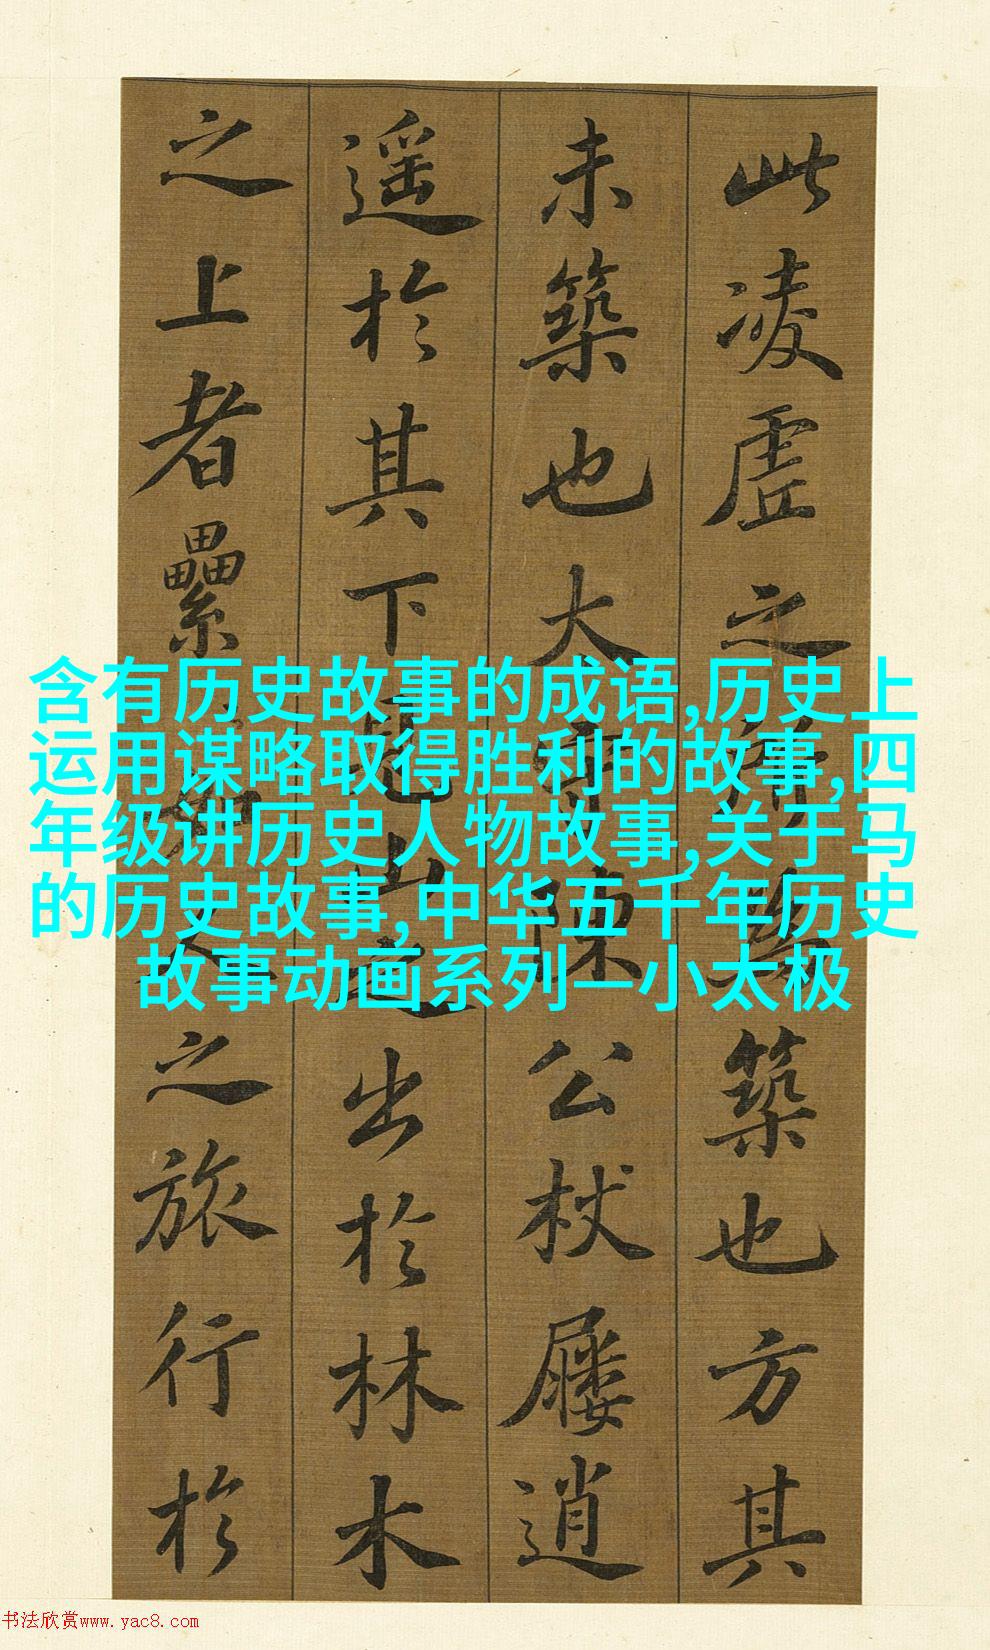 此凌虛之所為築也方其
未築也大守陳公杖屨逍
遥於其下見山之出於林木
之上者纍〻如人之旅行於
含有历史故事的成语,历史上
运用谋略取得胜利的故事,四
年级讲历史人物故事,关于马
的历史故事,中华五千年历史
故事动画系列—小太极
书法欣赏www.yac8.com